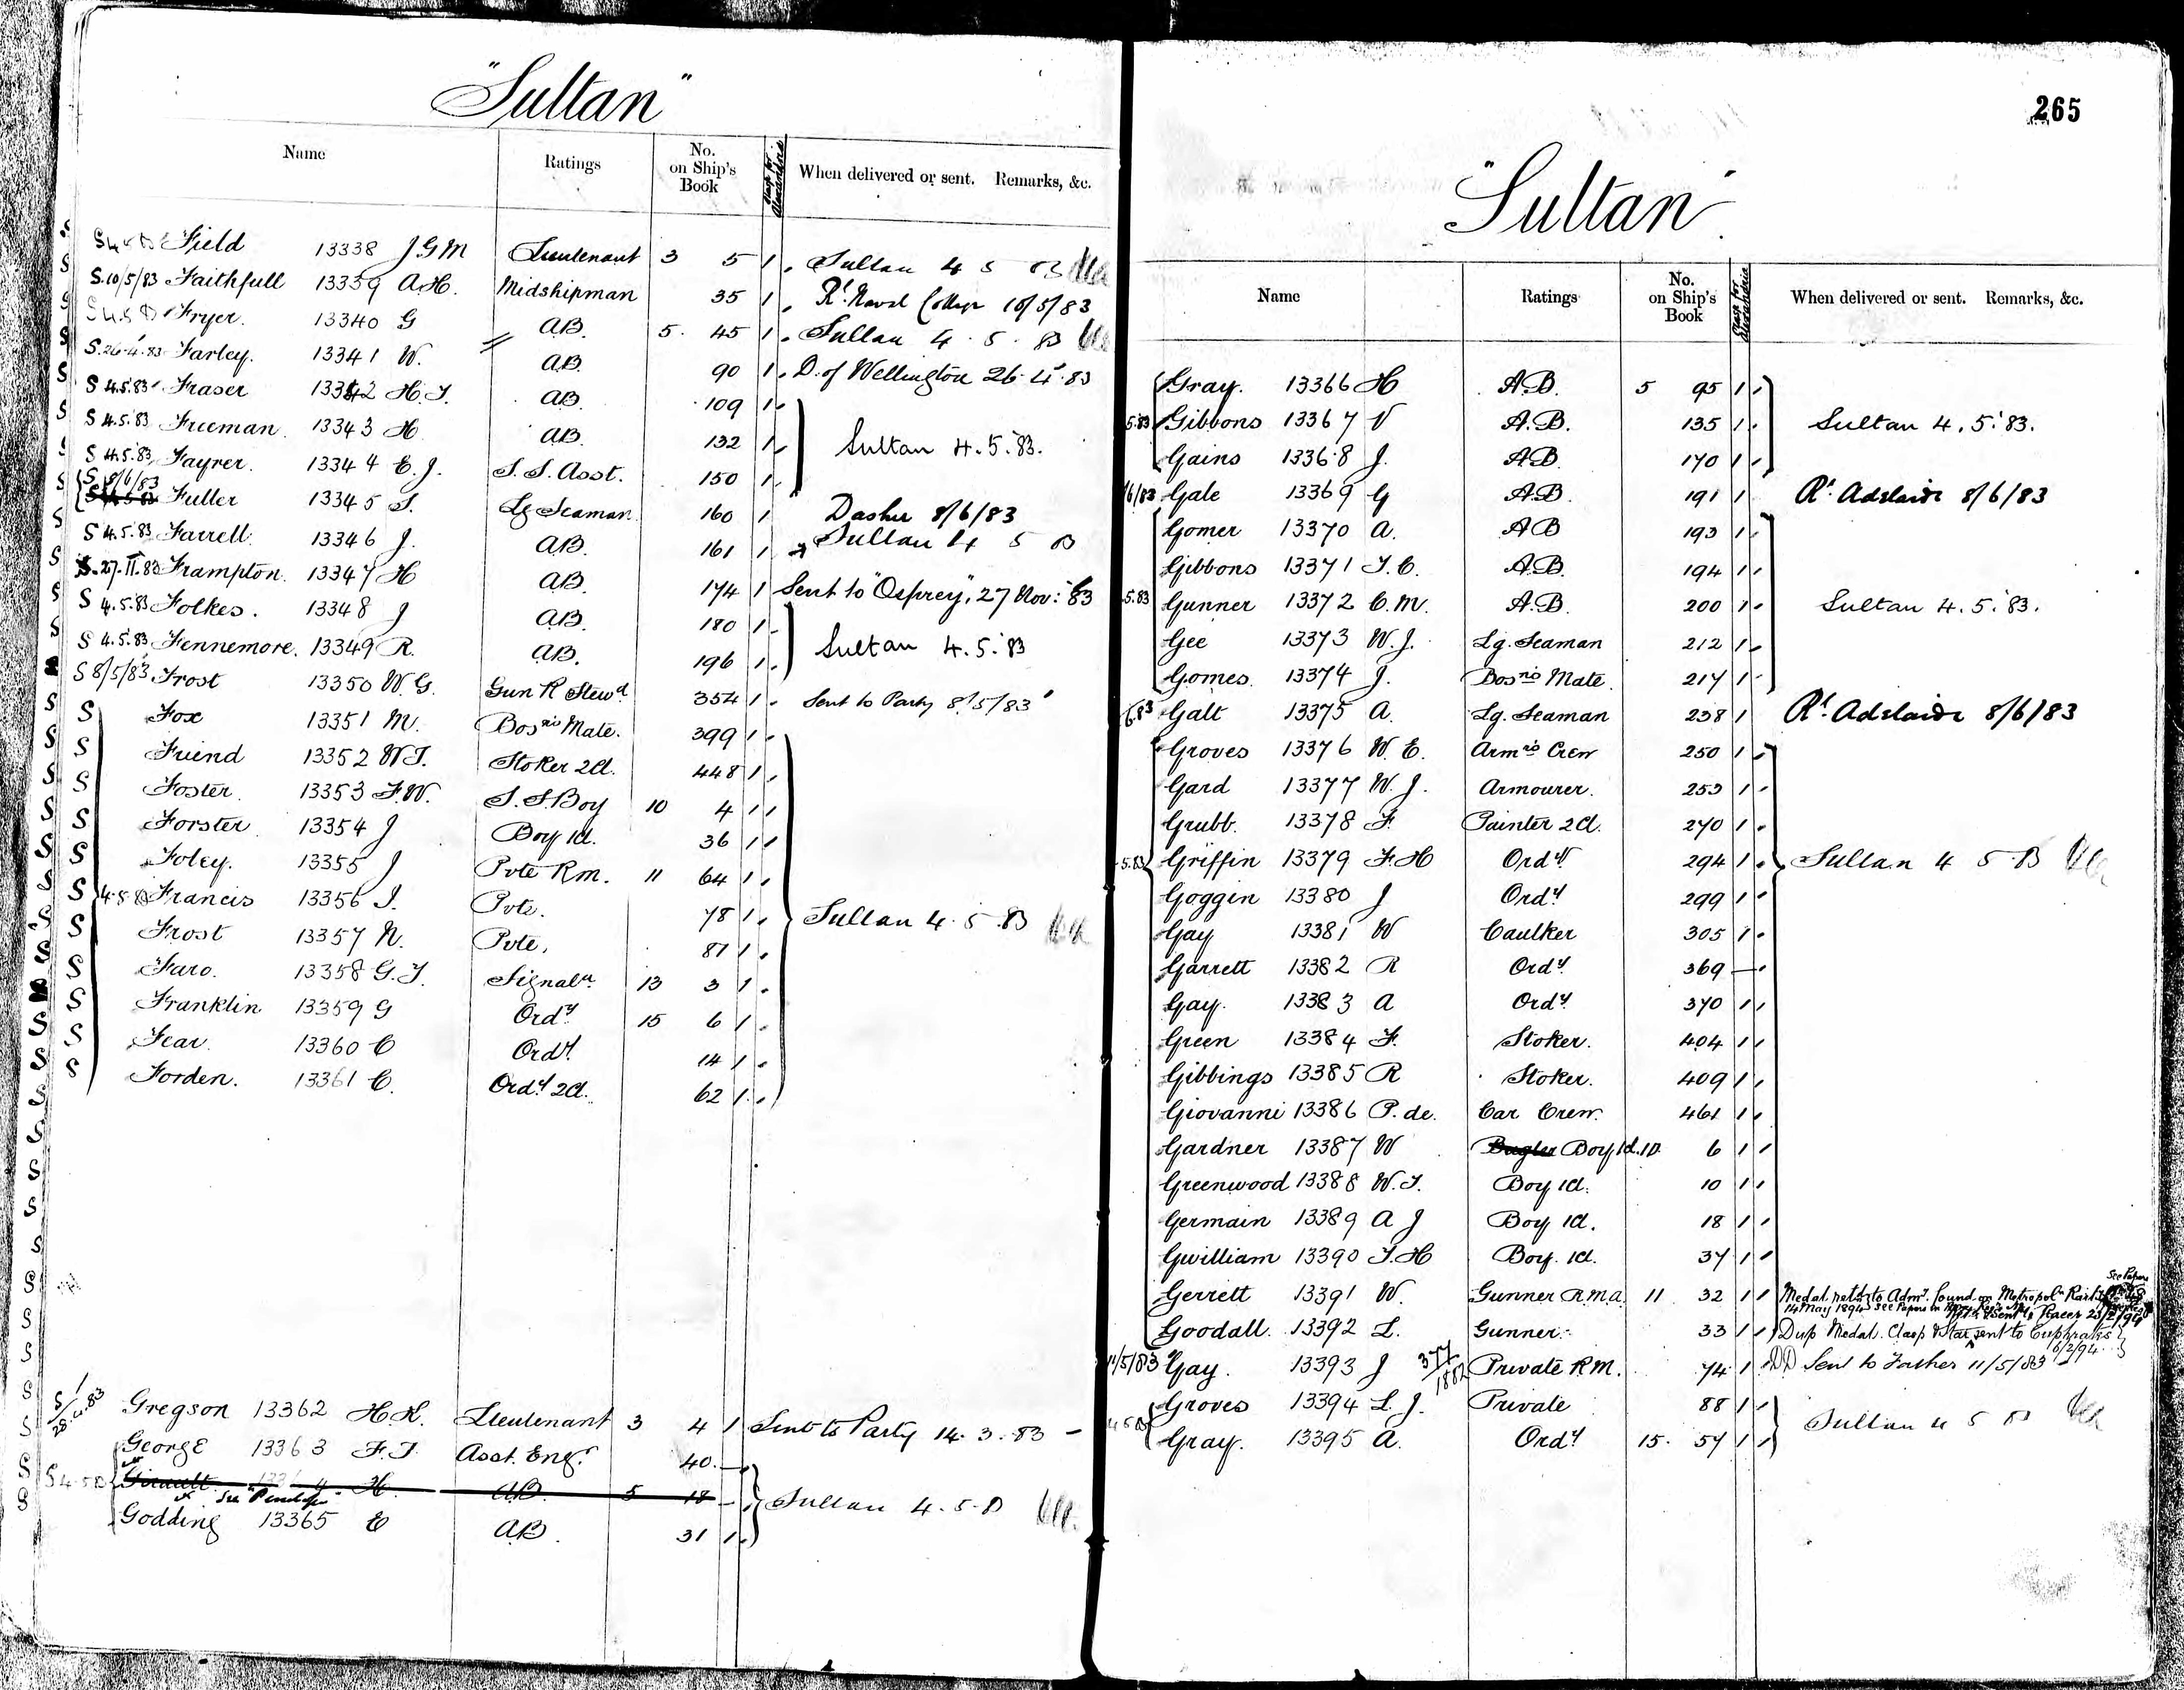 "Sultan"
Name Ratings No. on Ship's Book Clasp for Alexandria When delivered or sent. Remarks, &c.
S 4.5.83 Field 13338 J G M Lieutenant 3 5 1 Sultan 4 5 83
S.10/5/83 Faithfull 13339 A.H. Midshipman 35 1 Rl. Naval College 10/5/83
S 4.5.83 Fryer. 13340 G AB. 5. 45 1 Sultan 4.5.83
S.26.4.83 Farley. 13341 W. AB. 90 1 D. of Wellington 26.4.83
S 4.5.83 Fraser 13342 H.J. AB. 109 1
S 4.5.83 Freeman 13343 H AB. 132 1 Sultan 4.5.83.
S 4.5.83 Fayrer. 13344 E.J. S.S. Asst. 150 1
S 8/6/83 Fuller 13345 S. Lg Seaman. 160 1 Dasher 8/6/83
S 4.5.83 Farrell 13346 J. AB. 161 1 Sultan 4 5 83
S.27.11.83 Frampton. 13347 H AB. 174 1 Sent to "Osprey", 27 Nov: 83
S 4.5.83 Folkes. 13348 J AB. 180 1
S 4.5.83 Fennemore. 13349 R. AB. 196 1 Sultan 4.5.83
S 8/5/83 Frost 13350 W.G. Gun R Stewd. 354 1 Sent to Party 8/5/83
S Fox 13351 M. Bosns Mate. 399 1
S Friend 13352 W J. Stoker 2Cl. 448 1
S Foster 13353 F.W. S.S. Boy 10 4 1
S Forster 13354 J Boy 1Cl. 36 1
S Foley. 13355 J Pvte R.m. 11 64 1
S 4.5.83 Francis 13356 J. Pvte. 78 1 Sultan 4.5.83
S Frost 13357 N. Pvte. 87 1
S Faro. 13358 G.J. Signaln. 13 3 1
S Franklin 13359 G Ordy. 15 6 1
S Fear. 13360 C Ordy. 14 1
S Forden. 13361 C. Ordy 2Cl. 62 1
S 28.4.83 Gregson 13362 H.K. Lieutenant 3 4 1 Sent to Party 14.3.83 –
George 13363 F.J. Asst. Engr. 40. –
S 4.5.83 H. AB. 5 18 – Sultan 4.5.83
see Penelope
Godding 13365 E AB. 31 1
265
"Sultan"
Name Ratings No. on Ship's Book Clasp for Alexandria When delivered or sent. Remarks, &c.
Gray. 13366 H A.B. 5 95 1
5.83 Gibbons 13367 V A.B. 135 1 Sultan 4.5.83.
Gains 13368 J. A.B. 170 1
/6/83 Gale 13369 G A.B. 191 1 Rl. Adelaide 8/6/83
Gomer 13370 A. AB 193 1
Gibbons 13371 J.C. A.B. 194 1
5.83 Gunner 13372 C.M. A.B. 200 1 Sultan 4.5.83.
Gee 13373 W.J. Lg. Seaman 212 1
Gomes. 13374 J. Bosns Mate. 217 1
6.83 Galt 13375 A. Lg. Seaman 238 1 Rl. Adelaide 8/6/83
Groves 13376 W.E. Armrs Crew 250 1
Gard 13377 W.J. Armourer. 253 1
Grubb. 13378 F. Painter 2Cl. 270 1
5.83 Griffin 13379 F.H Ordy. 294 1 Sultan 4 5.83
Goggin 13380 J Ordy. 299 1
Gay 13381 W Caulker 305 1
Garrett 13382 R Ordy. 369 –
Gay. 13383 A Ordy. 370 1
Green 13384 F. Stoker. 404 1
Gibbings 13385 R Stoker. 409 1
Giovanni 13386 P. de. Car Crew. 461 1
Gardner 13387 W Bugler Boy 1Cl. 10 6 1
Greenwood 13388 W.J. Boy 1Cl. 10 1
Germain 13389 A J Boy 1Cl. 18 1
Gwilliam 13390 J.H Boy. 1Cl. 37 1
See Papers
Gerrett 13391 W. Gunner R.M.A. 11 32 1 Medal retd. to Admy. found on Metropoln Railway
14 May 1894 See Papers in sent to Racer 23/2/94
Goodall. 13392 L. Gunner. 33 1 Dup Medal. Clasp & Star sent to Euphrates 6/2/94
11/5/83 Gay. 13393 J 377/1882 Private R.M. 74 1 DD Sent to Father 11/5/83
Groves 13394 L.J. Private 88 1
4.5.83 Gray. 13395 A. Ordy. 15. 57 1 Sultan 4 5 83